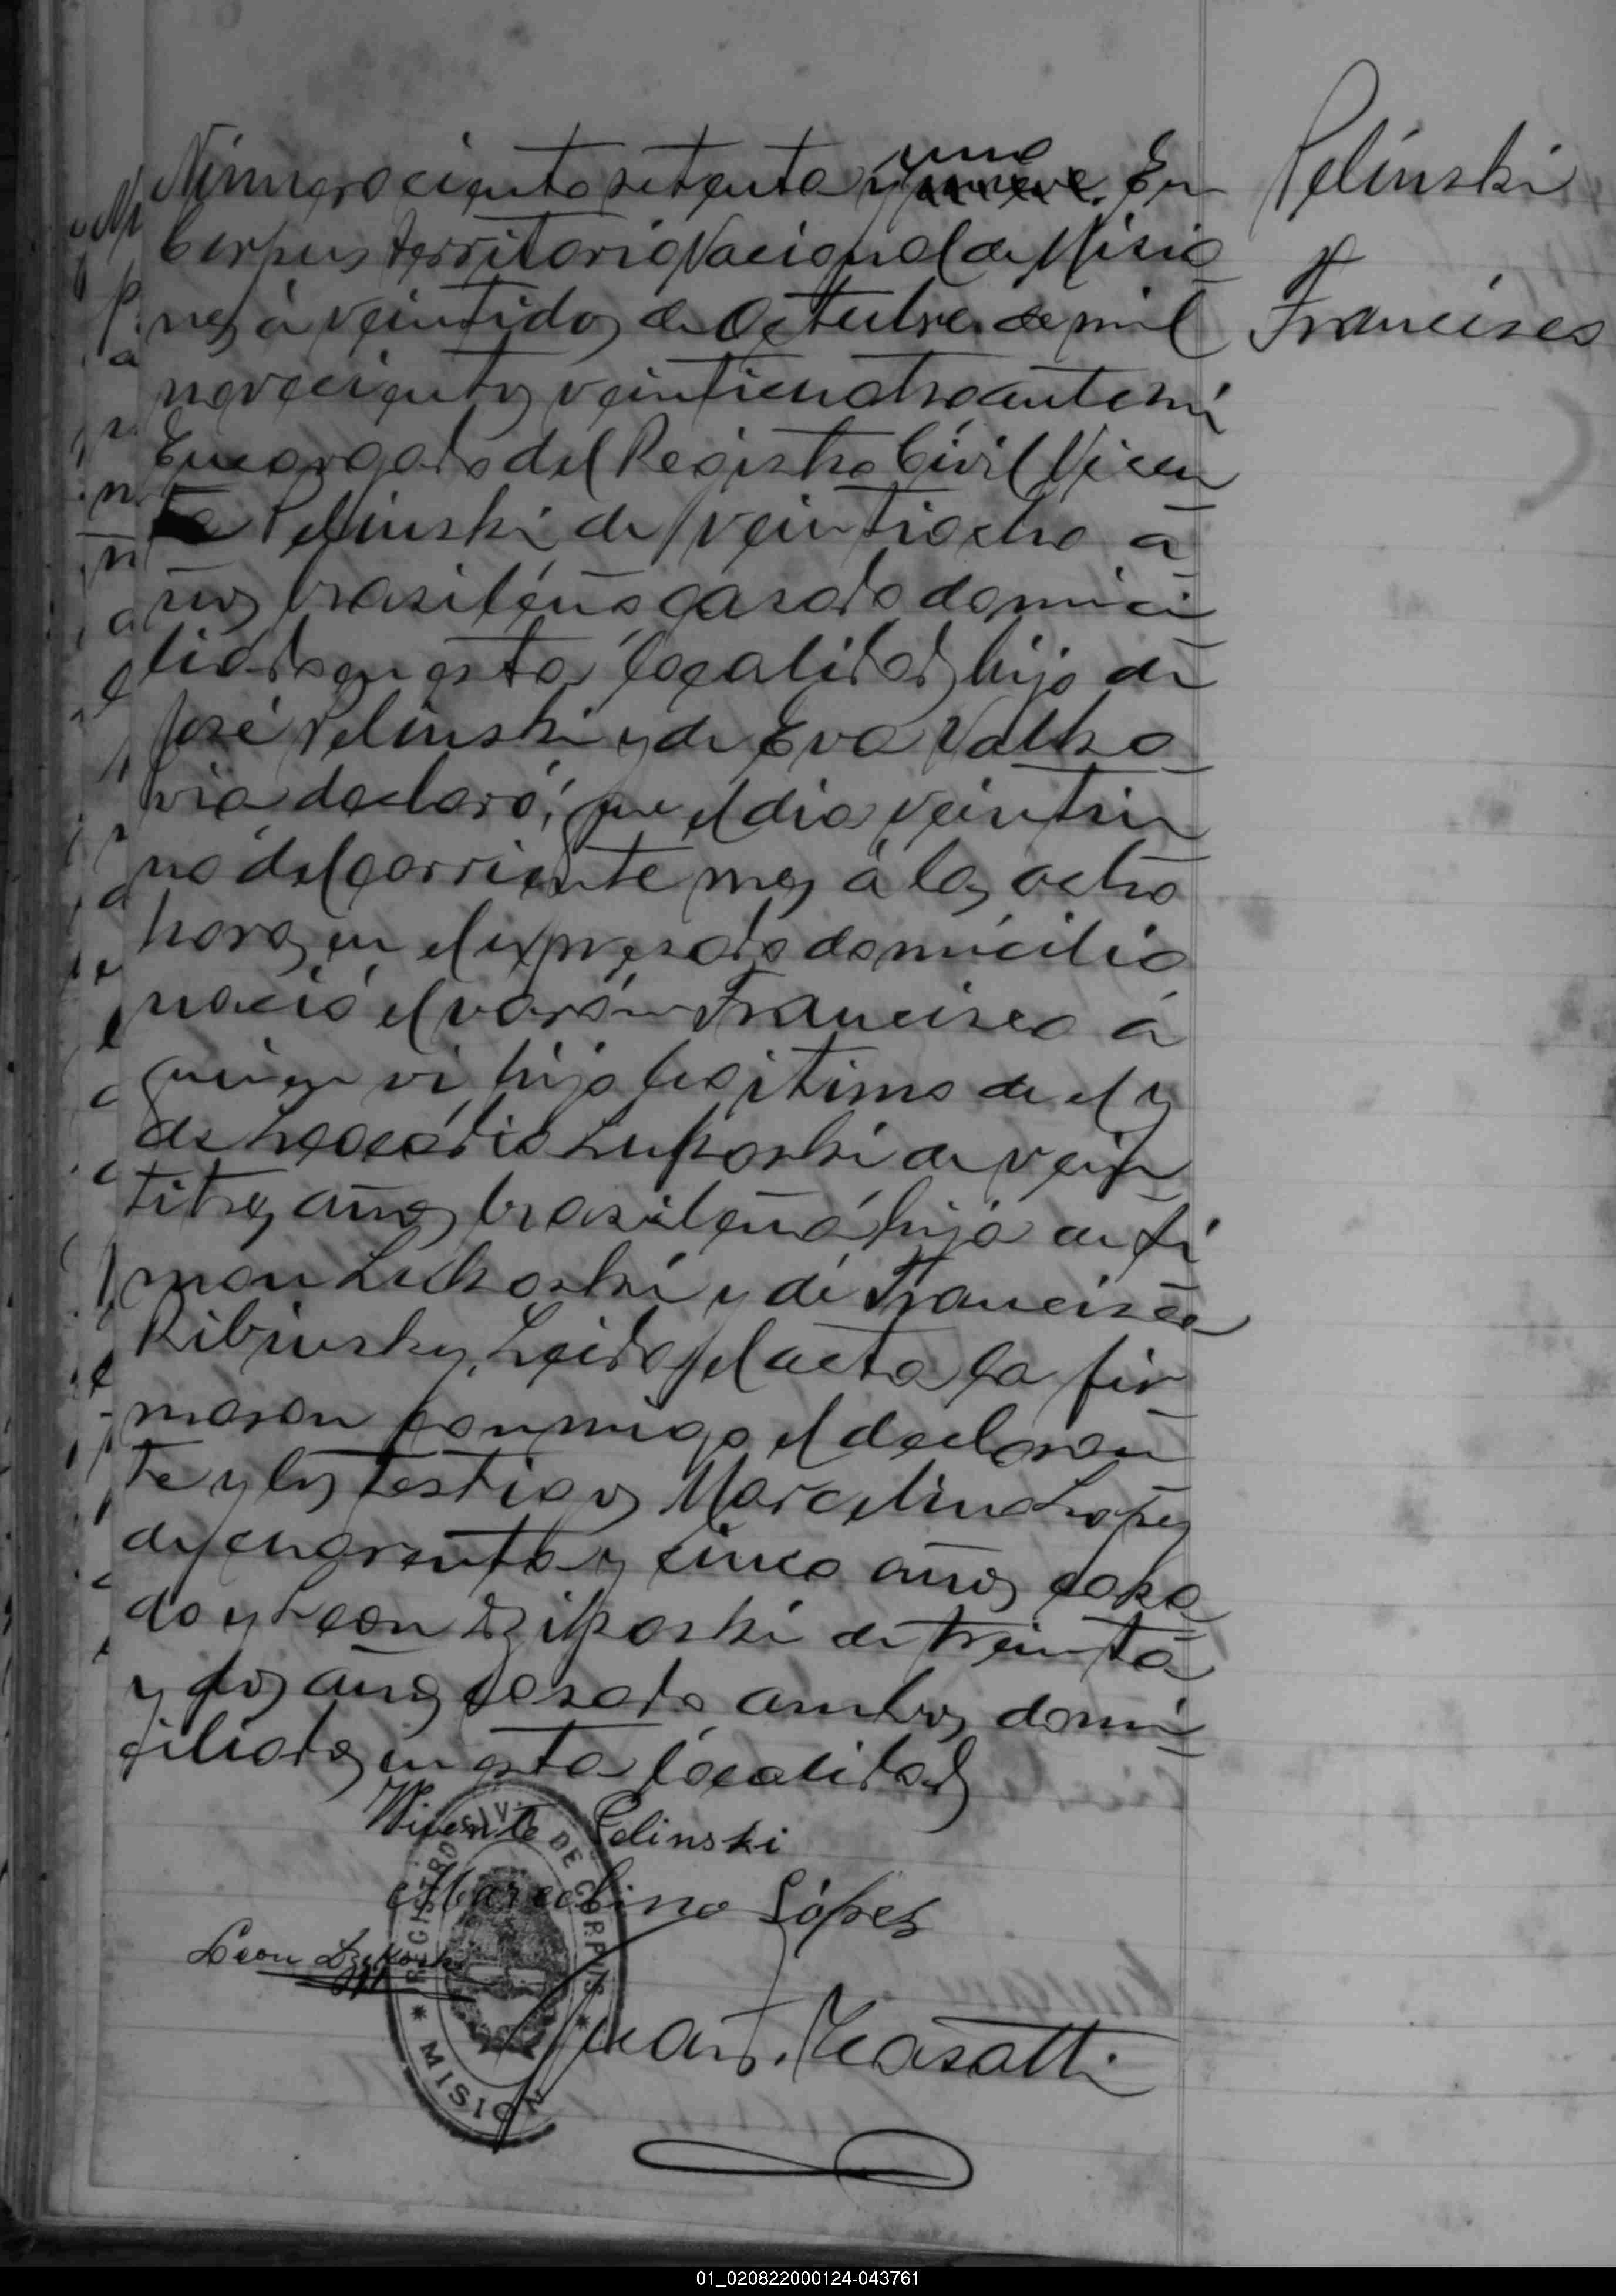 Pelinski
Francisco
Número ciento setenta y nueve. En
uno
Corpus territorio Nacional de Misio
nes, á veintidos de Octubre de mil
novecientos veinticuatro ante mi
Encargado del Registro Civil Vicen
te Pelinski de veintiocho a
ños brasileño casado domici
liado en esta localidad hijo de
José Pelinski y de Eva Valko
via declaró; que el dia veintiu
no del corriente mes á las ocho
horas en el expresado domicilio
nació el varón Francisco á
quien vi hijo legitimo de el y
de Leocadia Lukoski de vein
titres años brasileña hija de Si
mon Lukoski y de Francisca
Ribinsky. Leida el acta la fir
maron conmigo el declaran
te y los testigos Marcelino Lopez
de cuarenta y cinco años casa
do y Leon Dzikoski de treinta
y dos años casado ambos domi
ciliados en esta localidad
Vicente Pelinski
Marcelino López
Leon Dzekoski
Juan
REGISTRO CIVIL DE CORPUS
* MISIONES *
01_020822000124-043761